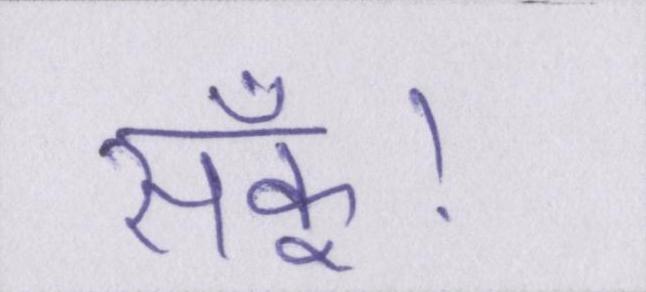 सकूँ!